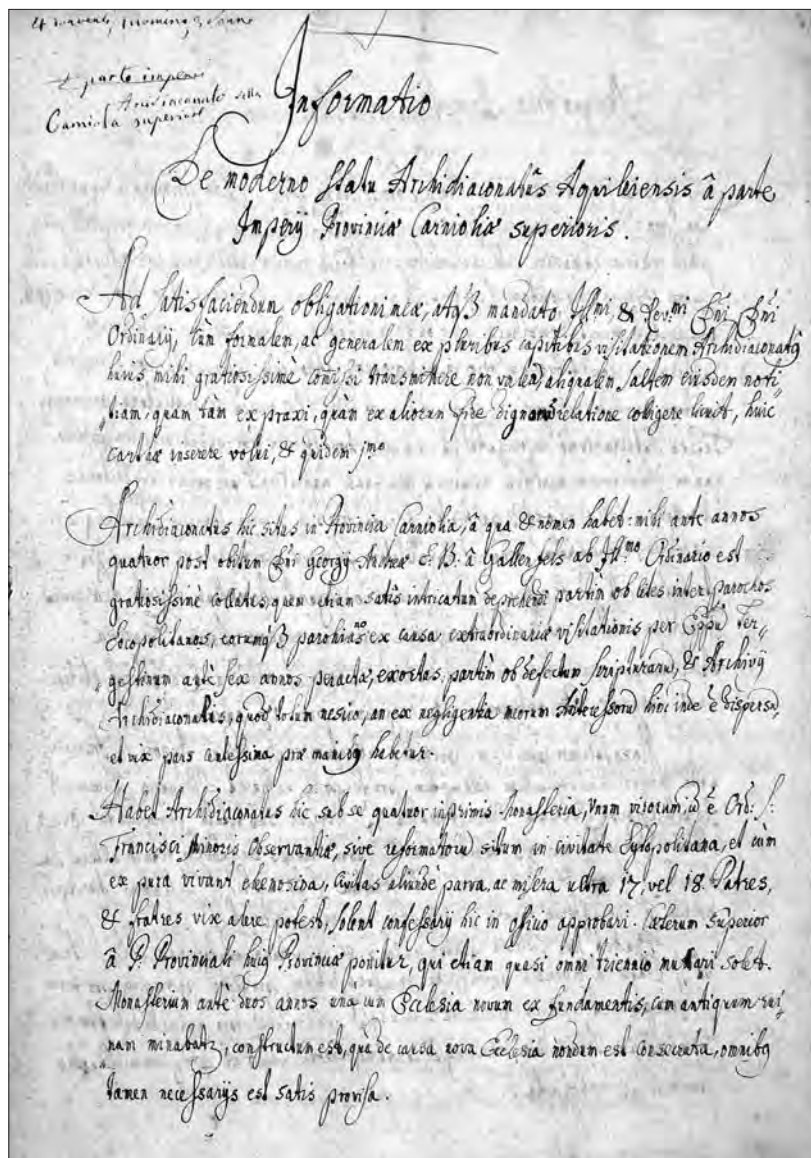 & parte imperii
Archidiaconato della
Carniola superiore
Informatio
De moderno statu Archidiaconatûs Aquileiensis â parte
Imperij Provinciæ Carnioliæ superioris.
Ad satisfaciendum obligationi meæ, atq3 mandato Ill:mi, & Rev:mi Dni Dni
Ordinarij, cùm formalem, ac generalem ex pluribus capitibus visitationem Archidiaconatq
huius mihi gratiosissimè com̄issi transmittere non valeā, aliqualem saltem eiusdem noti„
„tiam, quam tàm ex praxi, quàm ex aliorum fide dignorū relatione colligere licuit, huic
carthæ inserere volui, & quidem j:mo
Archidiaconatus hic situs in Provincia Carniolia, â qua & nomen habet: mihi ante annos
quatuor post obitum Dni Georgij Andreæ L: B: â Gallenfels ab Ill:mo Ordinario est
gratiosissimè collatus, quem etiam satis intricatum deprehendi partìm ob lites inter parochos
Locopolitanos, eorumq3 parochianos ex causa extraordinariæ visitationis per Eppū Ter„
„gestinum antè sex annos peractæ, exortas, partìm ob defectum scripturarū, & Archivij
Archidiaconalis, quod totum nescio, an ex negligentia meorum Antecessorū hinc inde ē dispersū,
et vix pars centessima præ manibq habetur.
Habet Archidiaconatus hic sub se quatuor inprimis Monasteria, Unum virorum, ē Ord: S:
Francisci Minoris Observantiæ, sive reformatorū situm in civitate Lythopolitana, et cùm
ex pura vivant elemosina, Civitas aliundè parva, ac misera ultra 17, vel 18. Patres,
& fratres vix alere potest, solent confessarij hic in officio approbari. Cæterum Superior
â P: Provinciali huiq Provinciæ ponitur, qui etiam quasi omni triennio mutari solet.
Monasterium antè duos annos unà cum Ecclesia novum ex fundamentis, cum antiquum rui„
nam minabatr, constructum est, qua de causa nova Ecclesia nondum est consecrata, omnibq
tamen necessarijs est satis provisa.